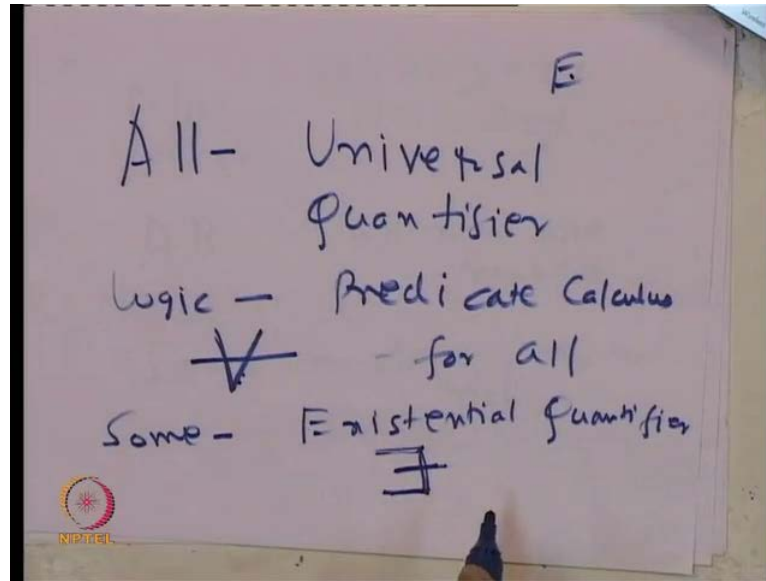 E
All - Universal
Quantifier
Logic - Predicate Calculus
∀ - for all
Some - Existential Quantifier
∃
NPTEL